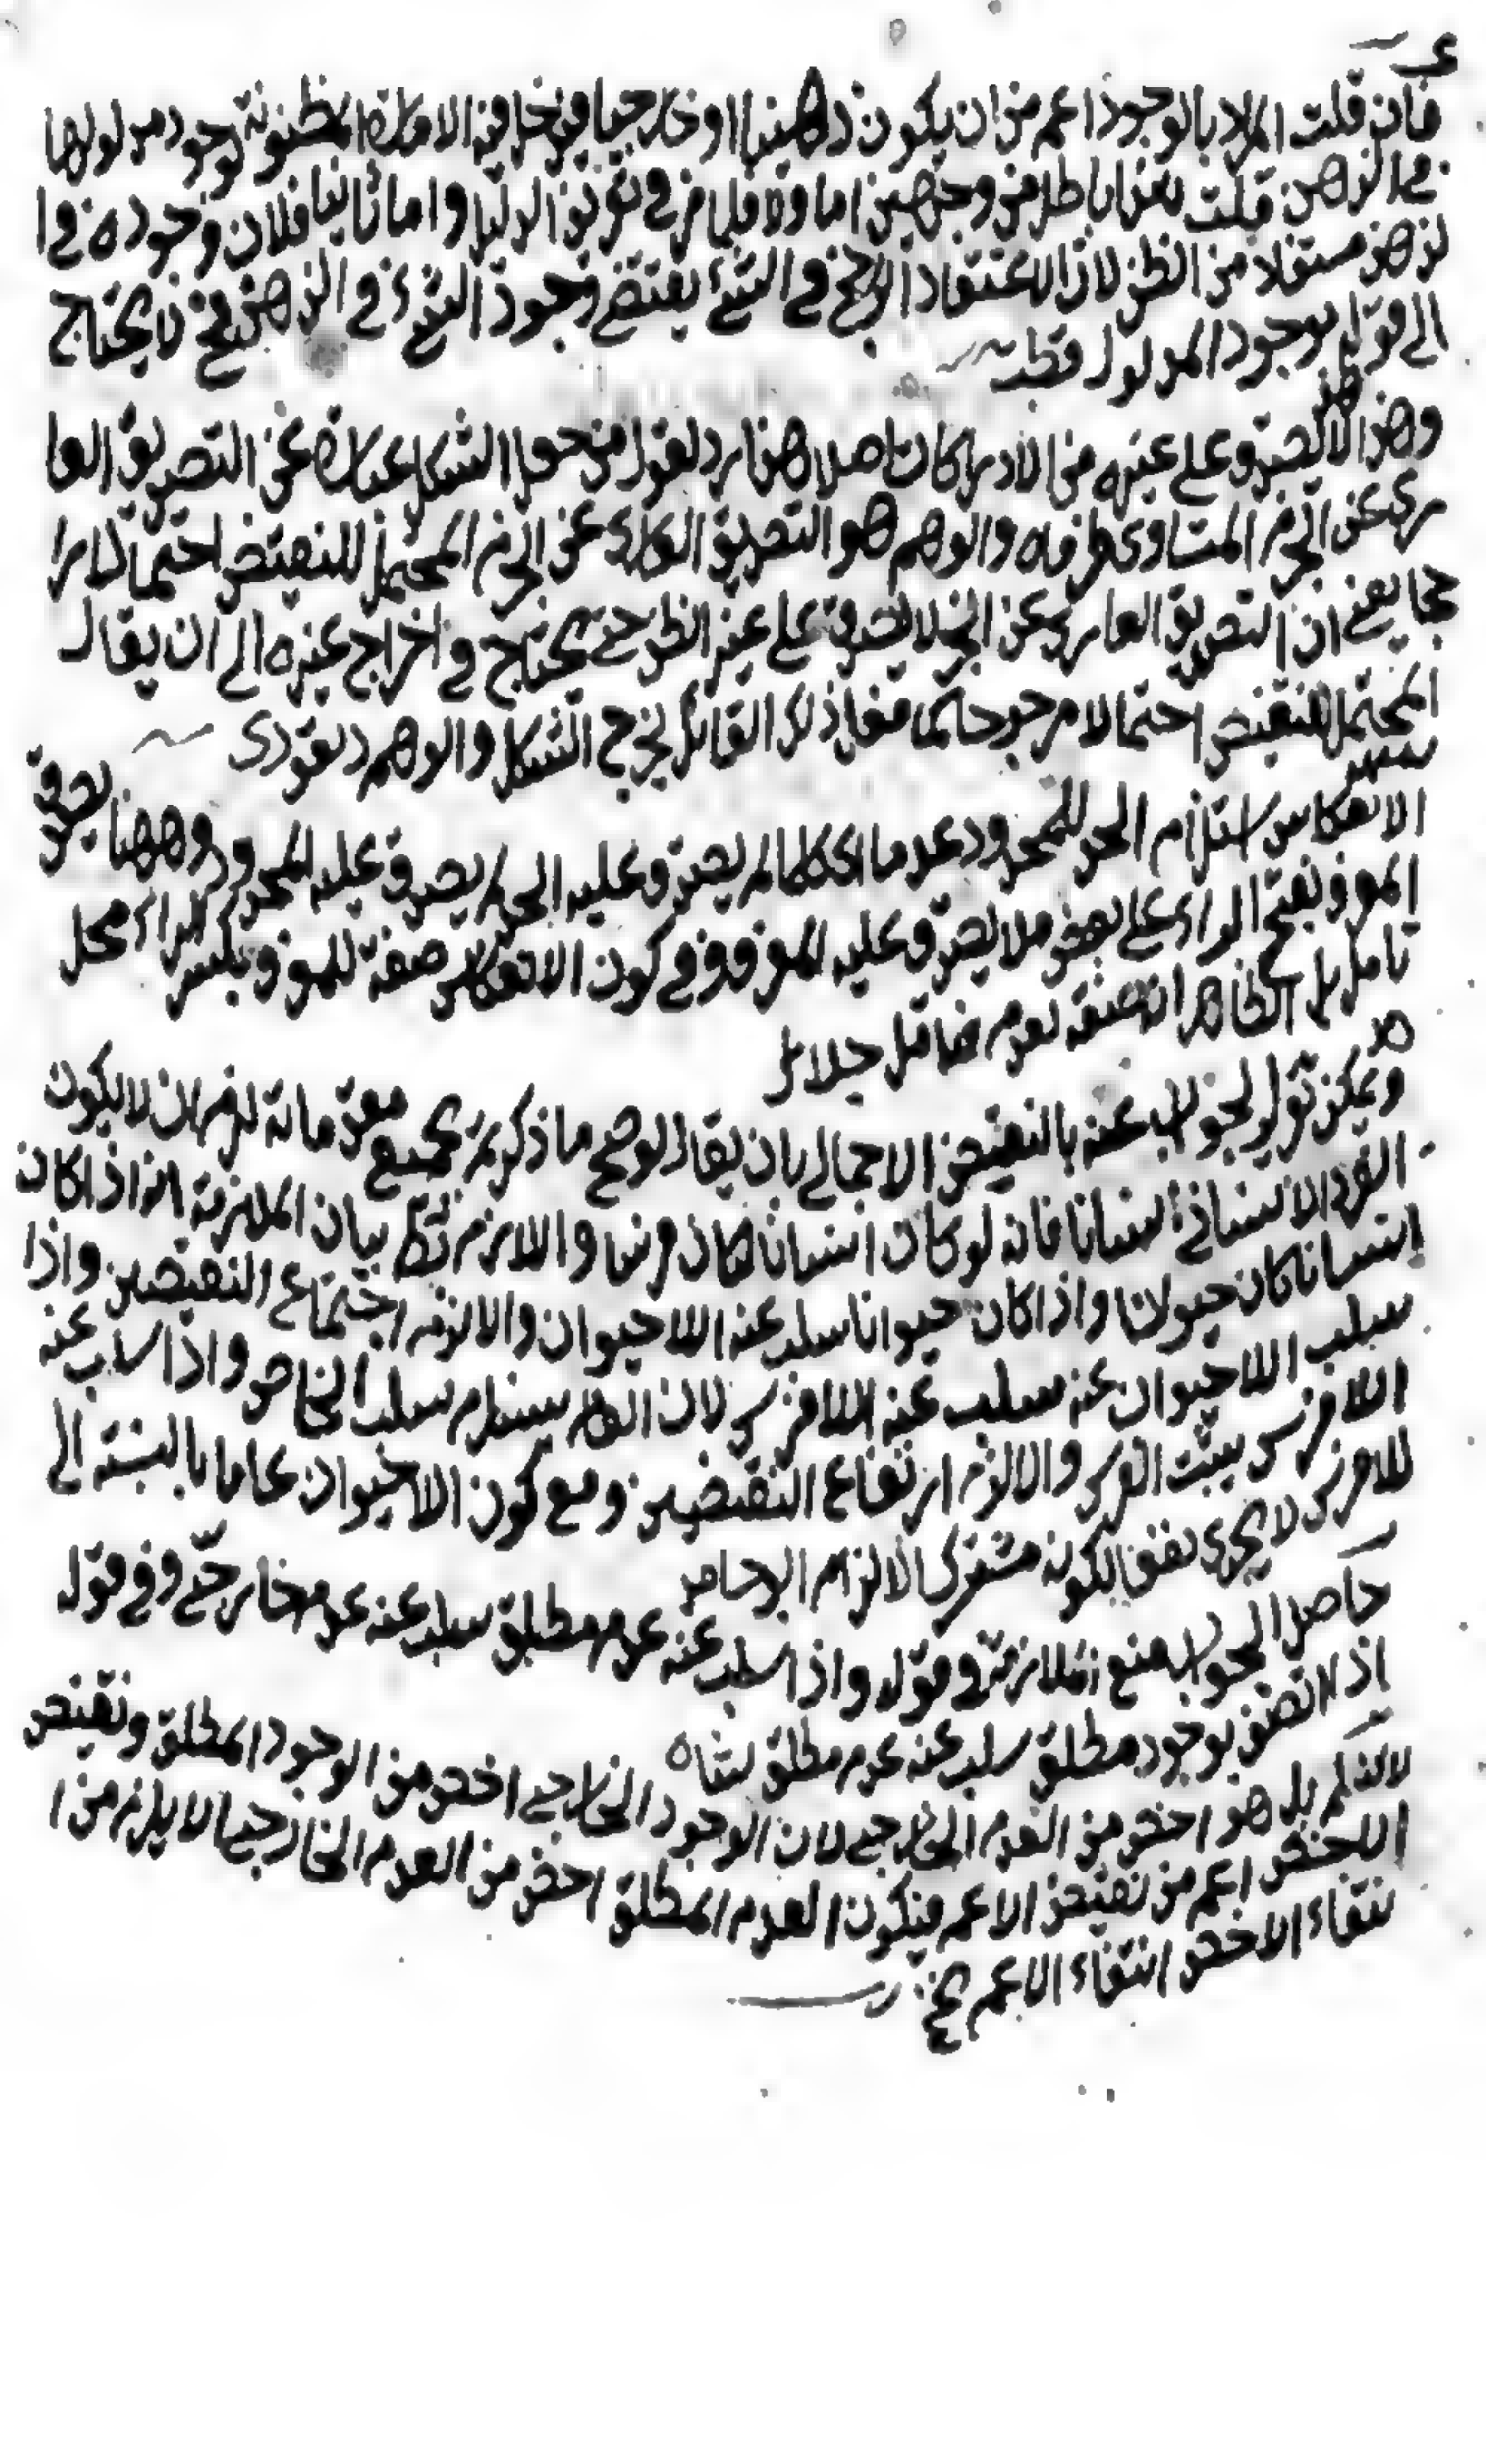 فان قلت المراد بالوجود اعم من ان يكون ذهنيا او خارجيا فيدخل فيه الامارة المظنونة لوجود مدلولها
في الذهن قلت هذا باطل من وجهين اما اولا فلما مر في تعريف الدليل واما ثانيا فلان وجوده في ا
لذهن مستفاد من الظن لان الاعتقاد الراجح في الشئ يقتضي وجود الشئ في الذهن فح لا يحتاج
الى قوله بوجود المدلول
وهذا لا يصدق على غيره من الادراكات اصلا هذا رد لقول من جعل الشك عبارة عن التصديق العا
رى عن الجزم المتساوى طرفاه والوهم هو التصديق العارى عن الجزم المحتمل للنقيض احتمالا را
جحا يعني ان التصديق العارى عن الجزم لا يصدق على غير الظن حتى يحتاج في اخراج غيره الى ان يقال
المحتمل للنقيض احتمالا مرجوحا كما فعل ذلك القائل ليخرج الشك والوهم
الانعكاس استلزام الحد للمحدود عدما اى كلما لم يصدق عليه الحد لم يصدق عليه المحدود وههنا يصدق
المعرف بفتح الراء على بعض ما لا يصدق عليه المعرف وفي كون الانعكاس صفة للمعرف بكسر الراء محل
تامل بل الظاهر انه صفة
ويمكن الجواب عنه بالنقض الاجمالي بان يقال لو صح ما ذكرتم بجميع مقدماته لزم ان لا يكون
الفرد الانساني انسانا فانه لو كان انسانا لكان فرسا واللازم بط بيان الملازمة انه اذا كان
انسانا كان حيوانا واذا كان حيوانا سلب عنه اللا حيوان والا لزم اجتماع النقيضين واذا
سلب اللا حيوان عنه سلب عنه اللا فرس لان العام يستلزم سلب الخاص واذا سلب عنه
اللا فرس يثبت الفرس والا لزم ارتفاع النقيضين ومع كون اللا حيوان عاما بالنسبة الى
اللا فرس لا يجرى نفعا لكونه مشترك الالزام
حاصل الجواب منع الملازمة في قوله واذا سلب عنه عدم مطلق سلب عنه عدم خارجي وفي قوله
اذ لا اتصف بوجود مطلق سلب عنه عدم مطلق
لا نسلم بل هو اخص من العدم الخارجي لان الوجود الخارجي اخص من الوجود المطلق ونقيض
الاخص اعم من نقيض الاعم فيكون العدم المطلق اخص من العدم الخارجي لا يلزم من ا
نتفاء الاخص انتفاء الاعم